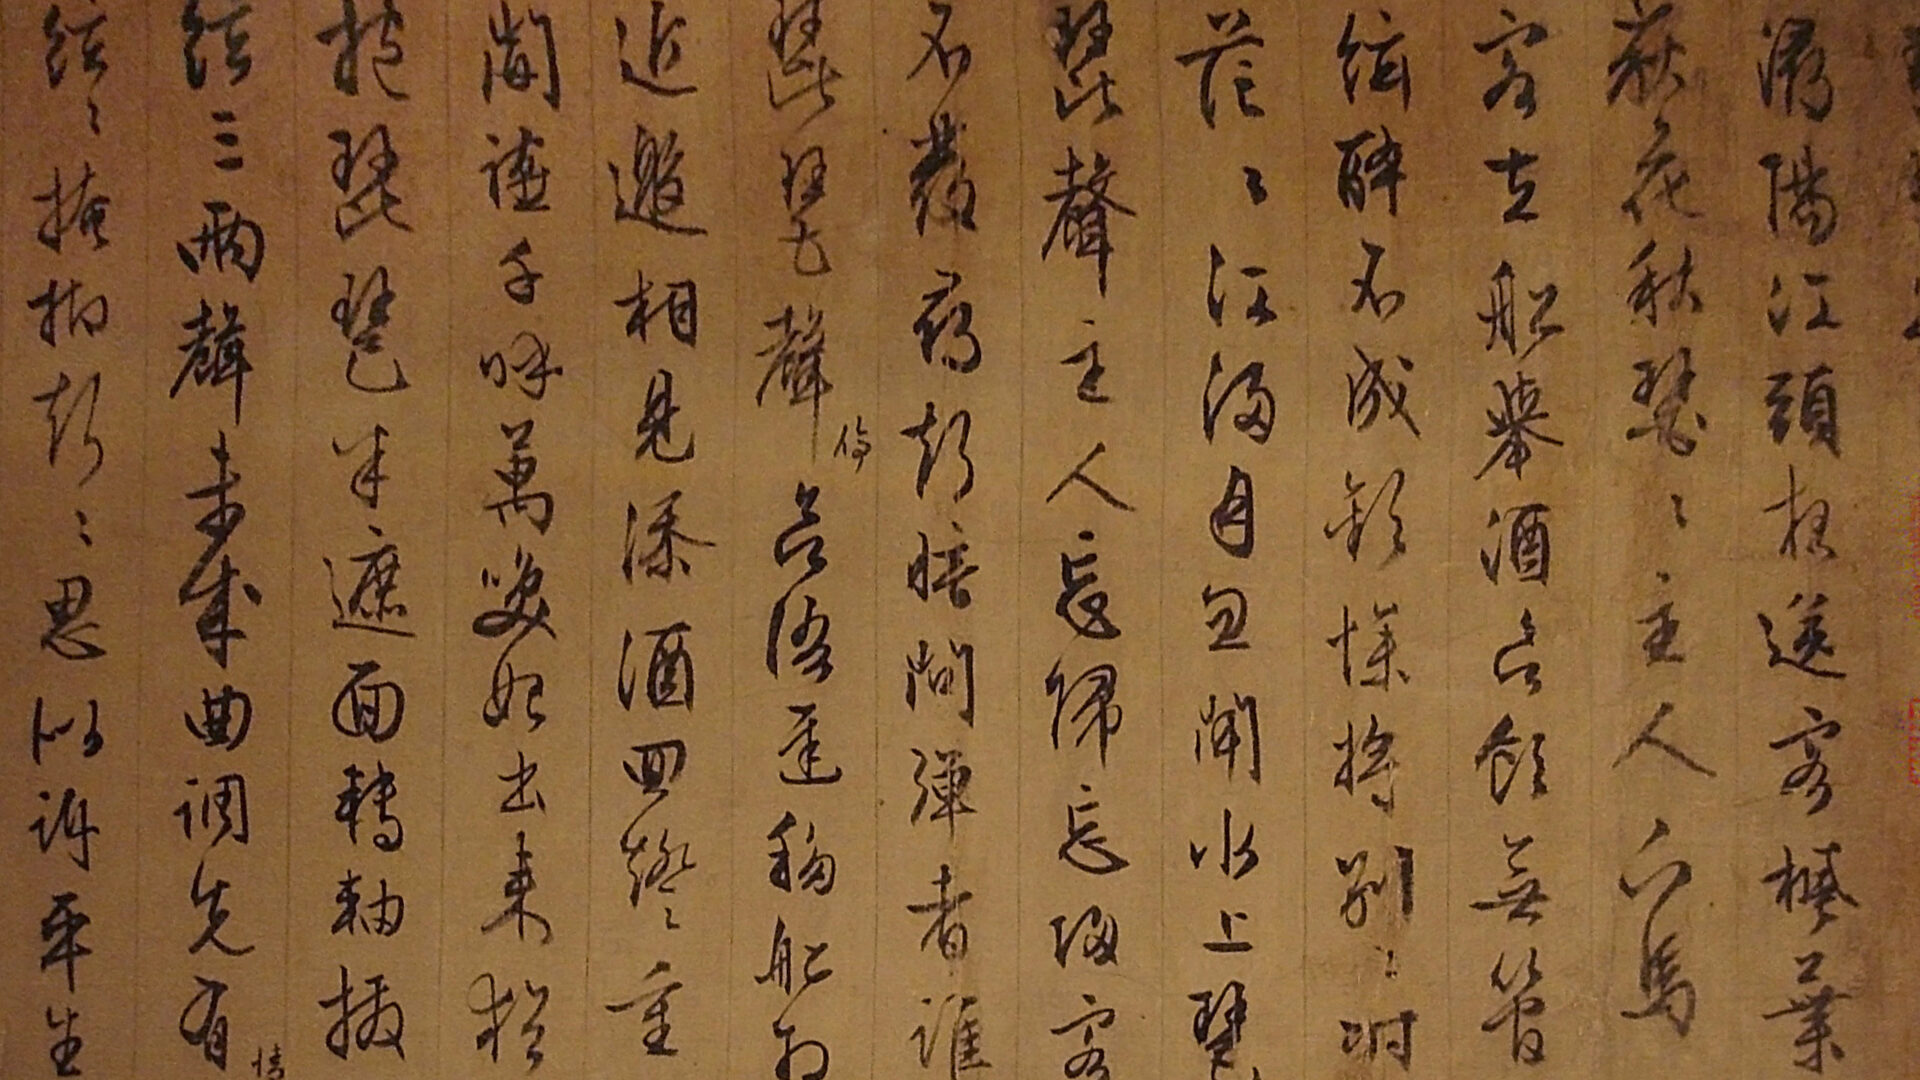 潯陽江頭夜送客楓葉
荻花秋瑟〻主人下馬
客在船舉酒欲飲無管
絃醉不成歡慘將別〻時
茫〻江浸月忽聞水上琵
琶聲主人忘歸忘歸客
不發尋聲暗問彈者誰
琵琶聲停欲語遲移船相
近邀相見添酒回燈〻重
開讌千呼萬喚始出來猶
抱琵琶半遮面轉軸撥
絃三兩聲未成曲調先有情
絃〻掩抑聲〻思似訴平生